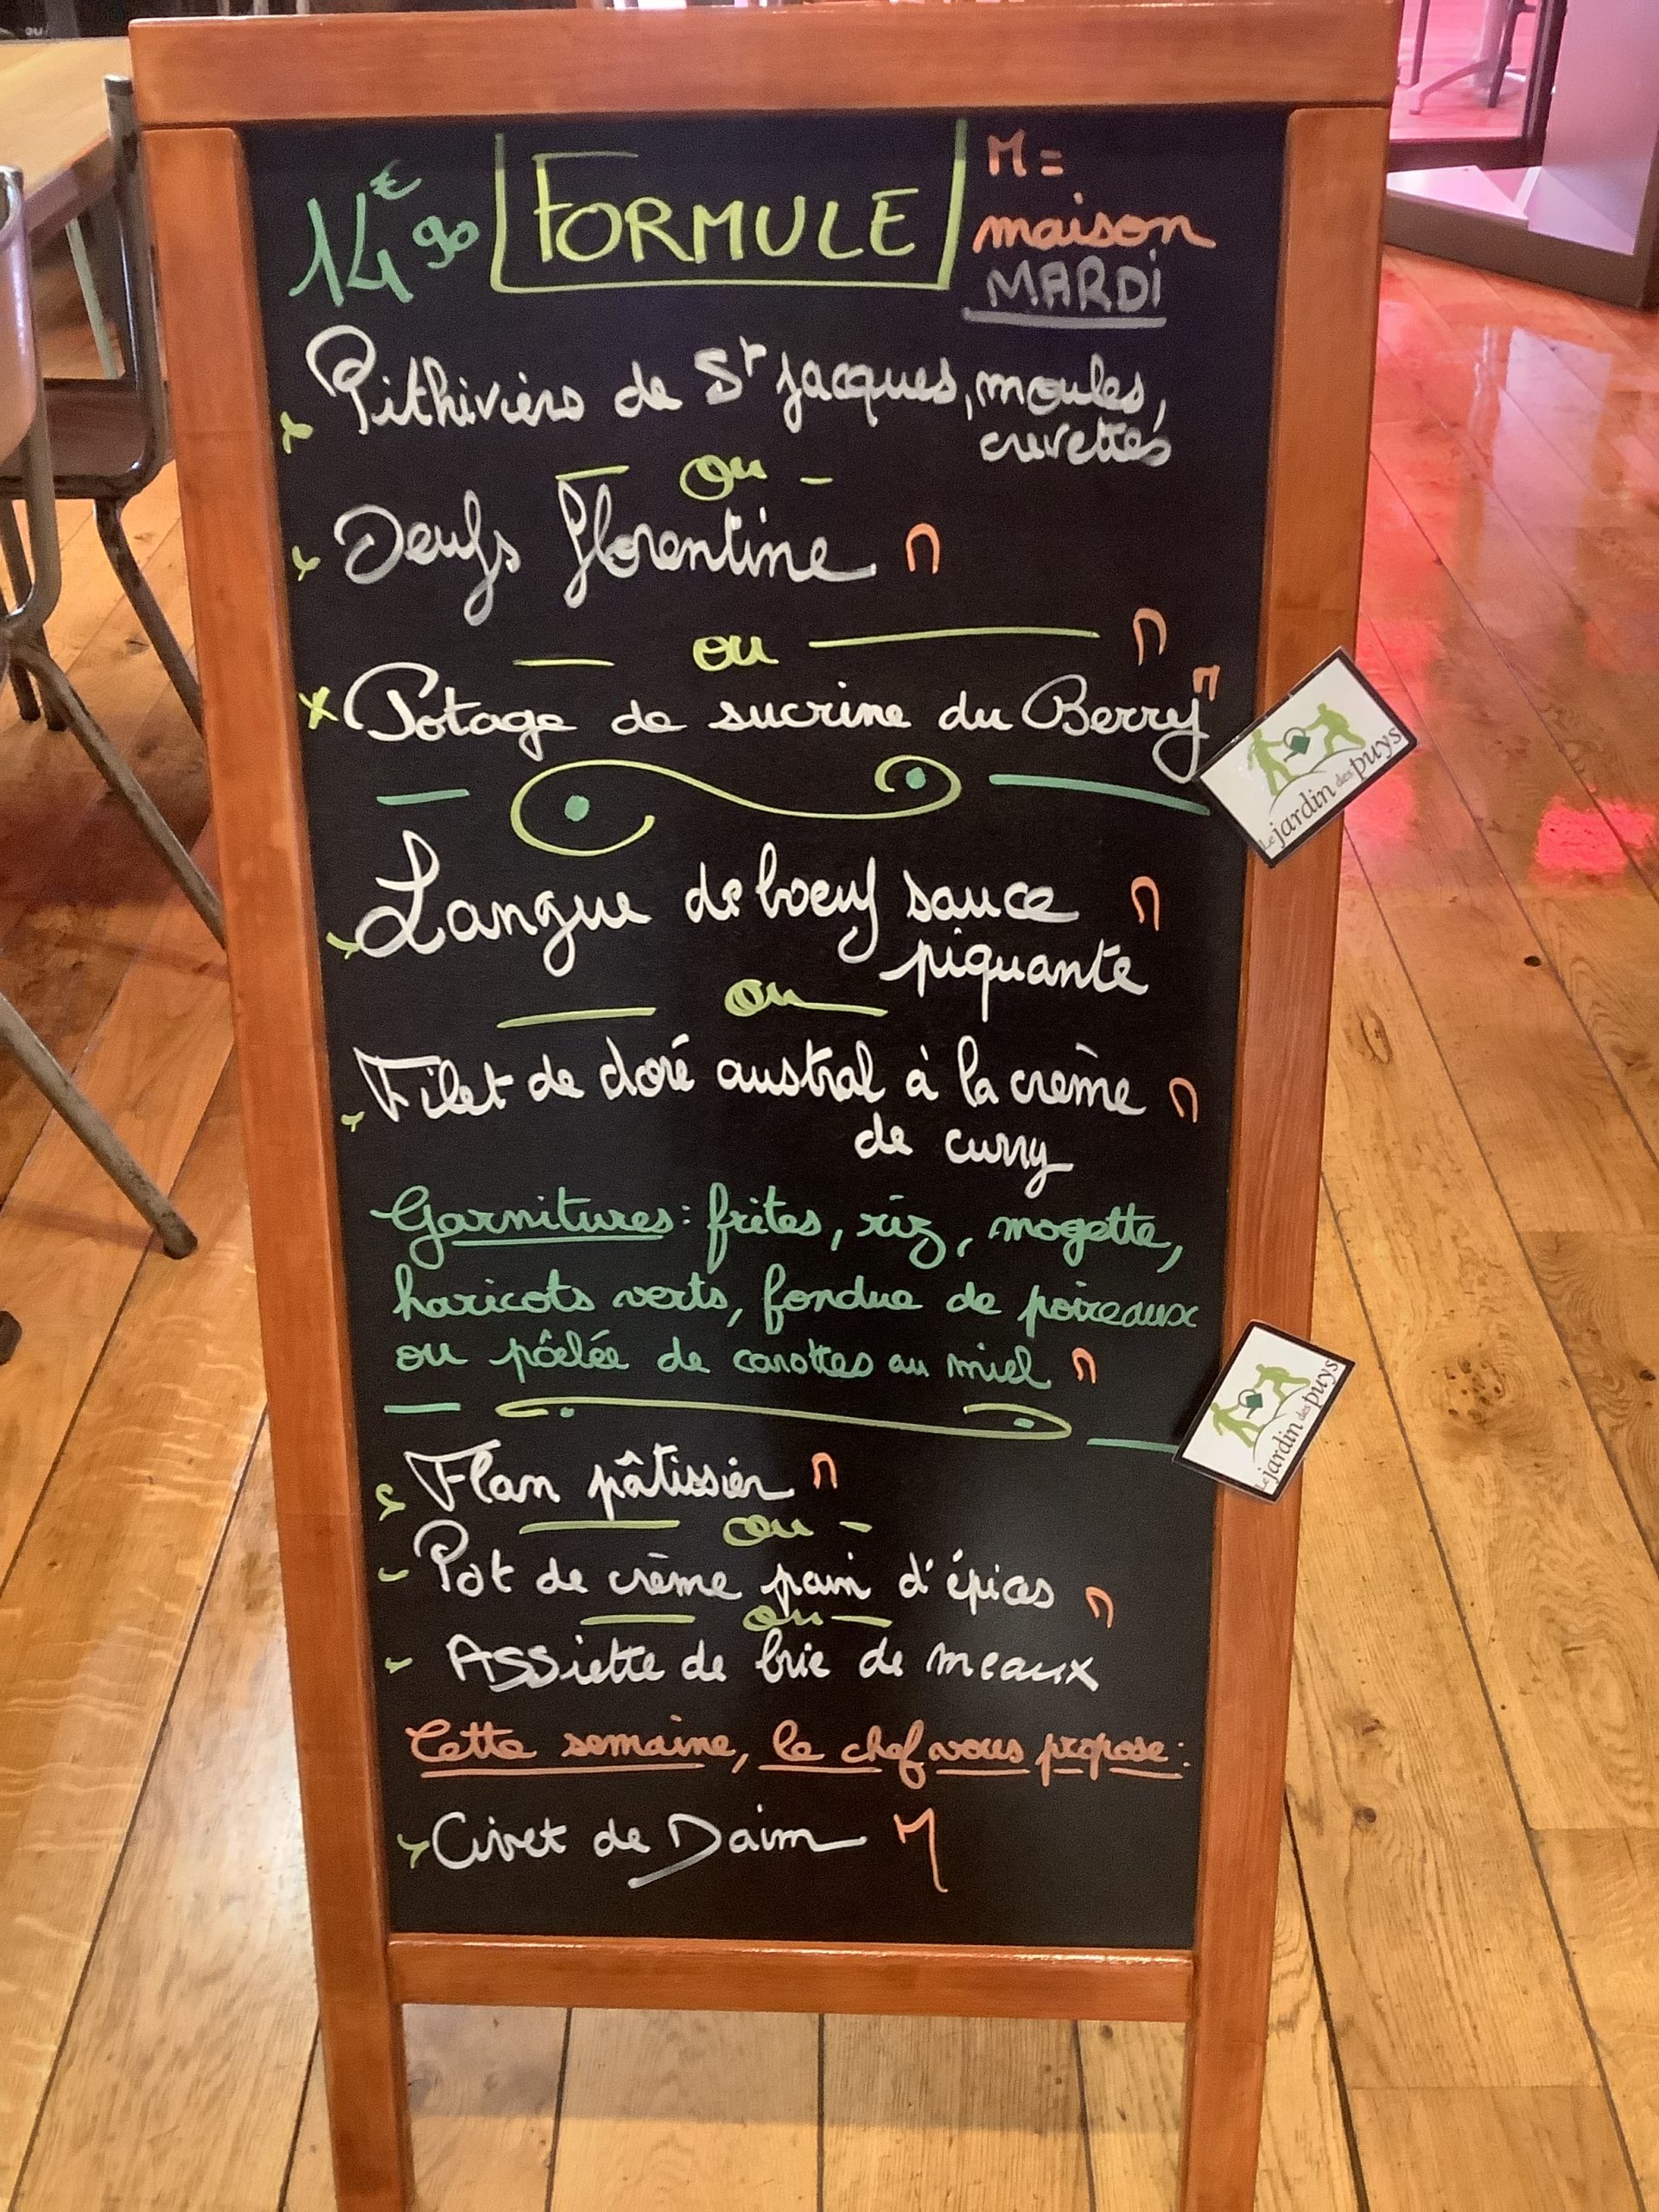 14€90 FORMULE M =
maison
MARDi
Pithiviers de St jacques, moules,
crevettes
ou
Oeufs florentine M
ou M
Potage de sucrine du Berry M
Le jardin des puys
Langue de boeuf sauce M
piquante
ou
Filet de doré austral à la crème M
de curry
Garnitures : frites, riz, mogette,
haricots verts, fondue de poireaux
ou pôelée de carottes au miel M
Le jardin des puys
Flan pâtissier M
ou
Pot de crème pain d'épices M
ou
Assiette de brie de meaux
Cette semaine, le chef vous propose :
Civet de Daim M